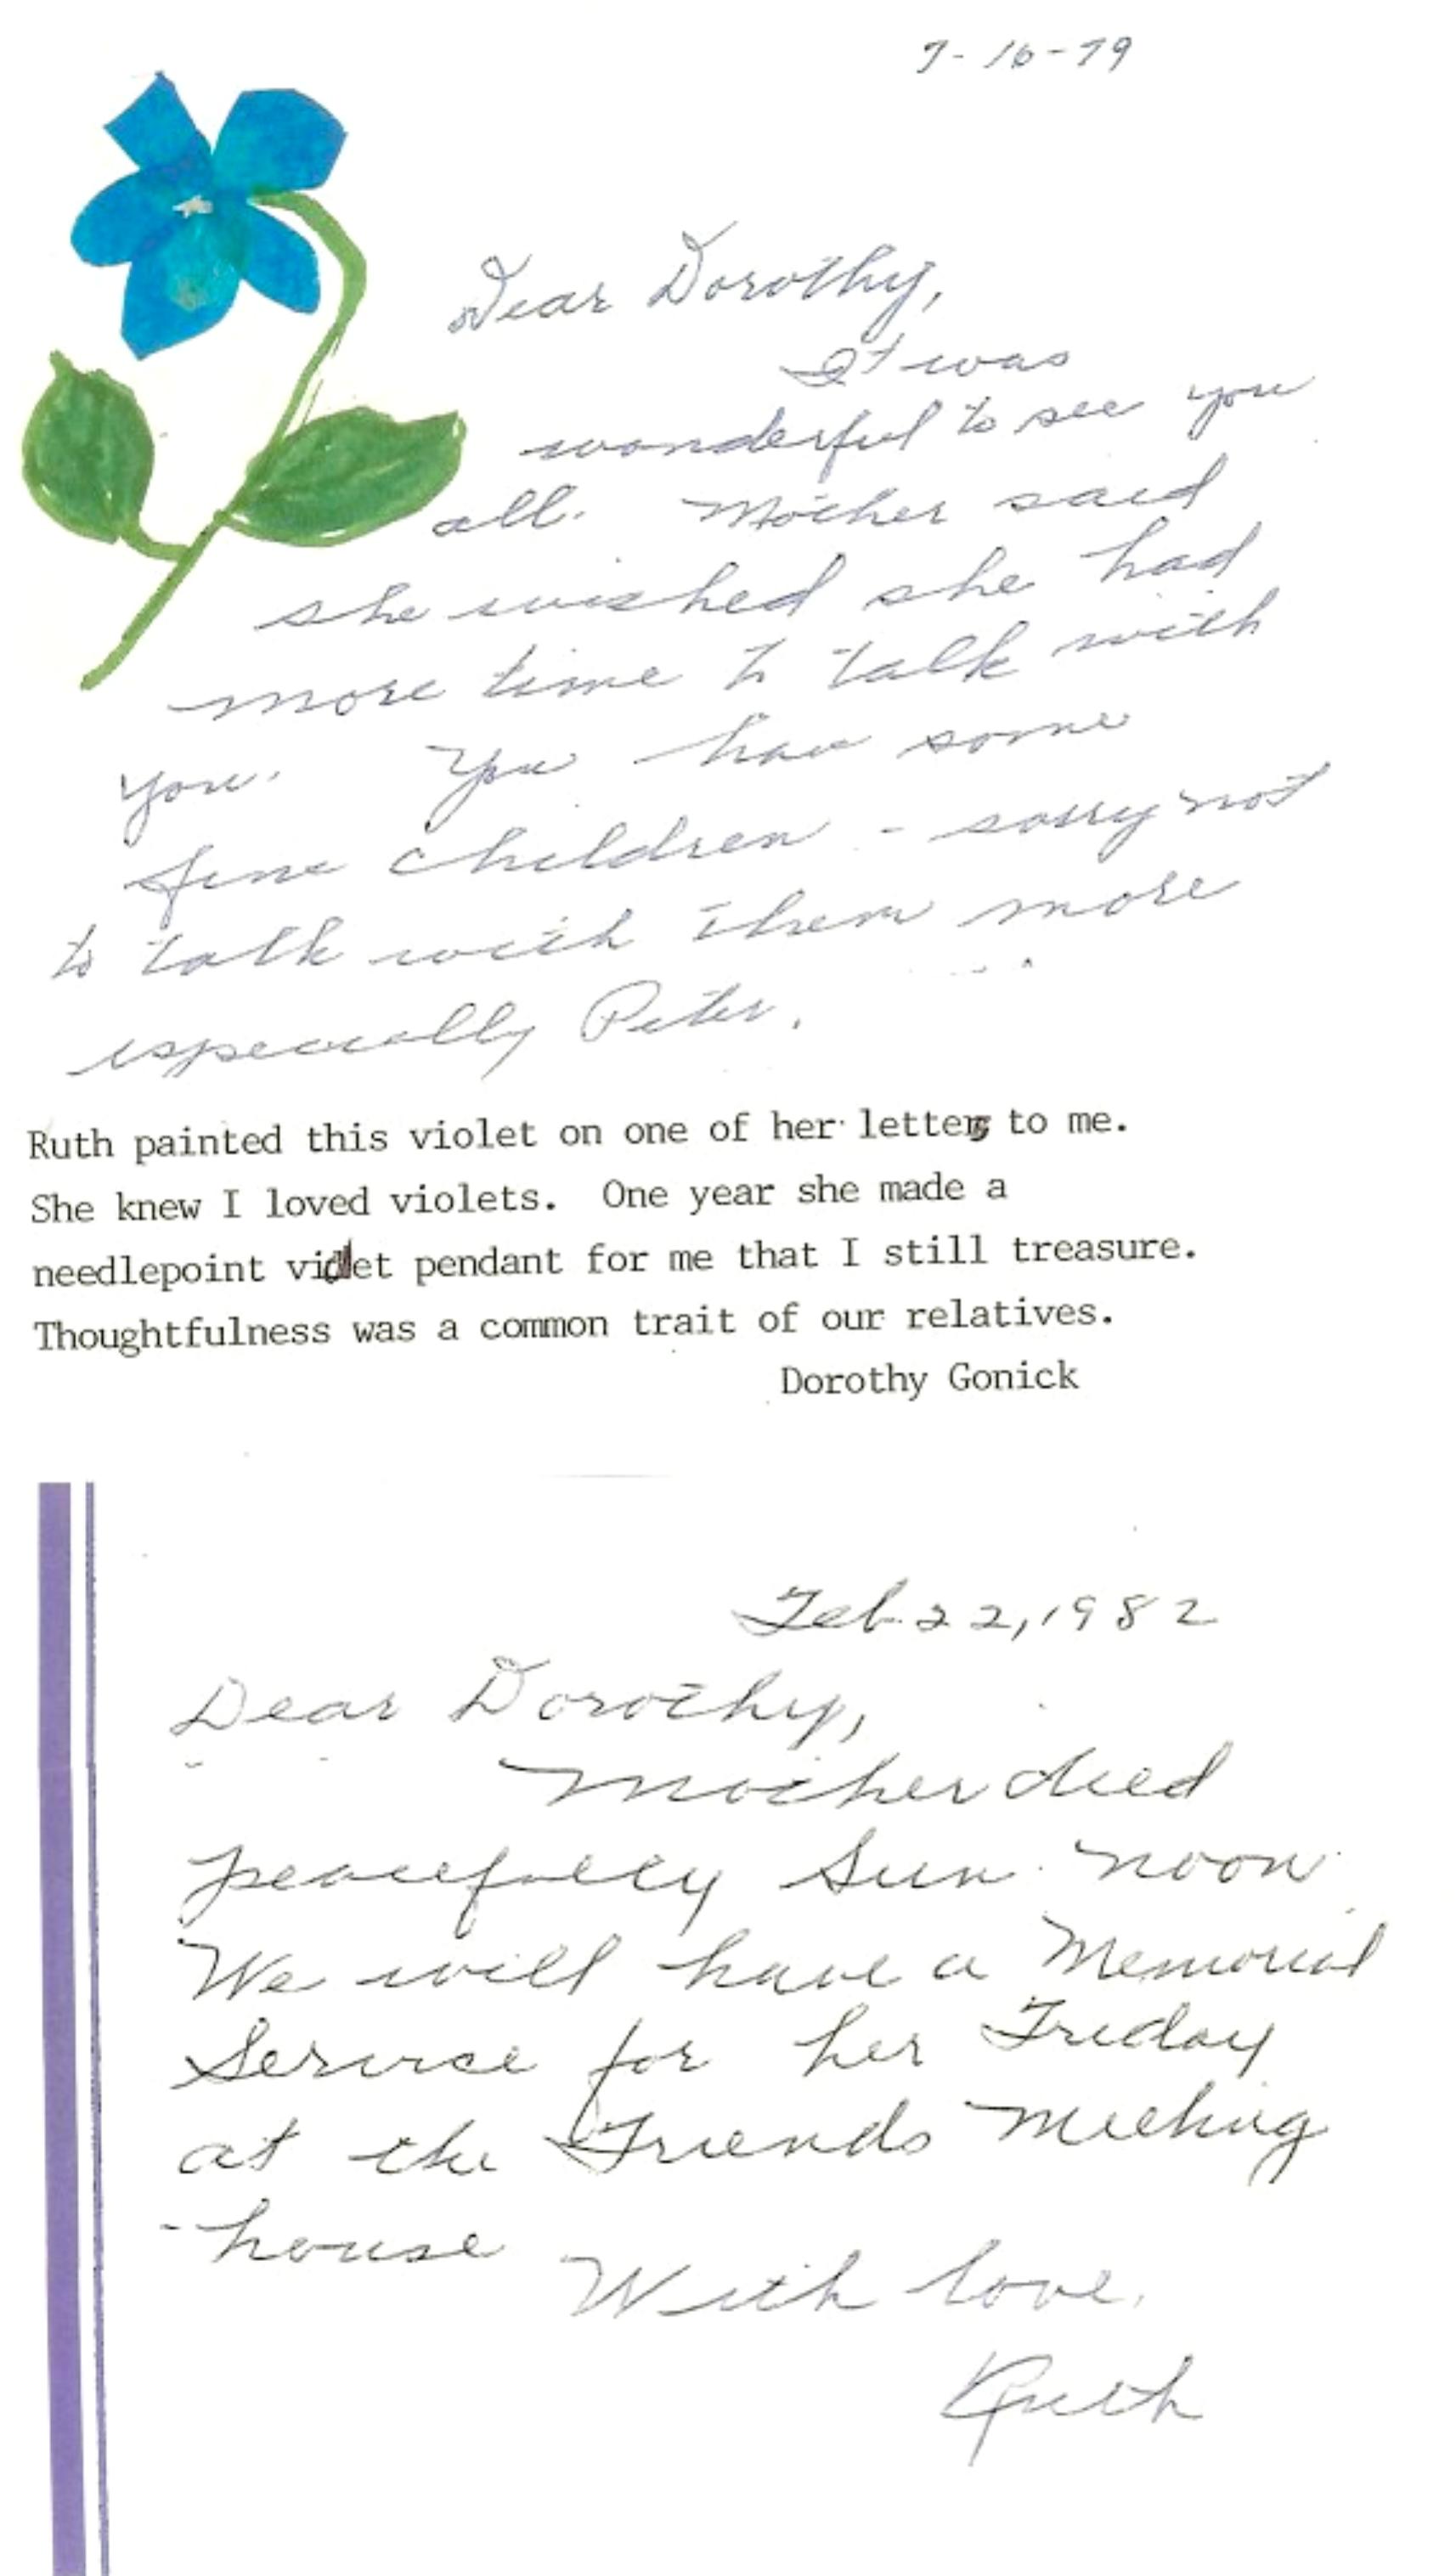 7-16-79
Dear Dorothy,
It was
wonderful to see you
all. Mother said
she wished she had
more time to talk with
you. You have some
fine children - sorry not
to talk with them more
especially Peter.
Ruth painted this violet on one of her letters to me.
She knew I loved violets.  One year she made a
needlepoint violet pendant for me that I still treasure.
Thoughtfulness was a common trait of our relatives.
Dorothy Gonick
Feb 22, 1982
Dear Dorothy,
Mother died
peacefully Sun. noon.
We will have a Memorial
Service for her Friday
at the Friends Meeting
-house
With love,
Ruth